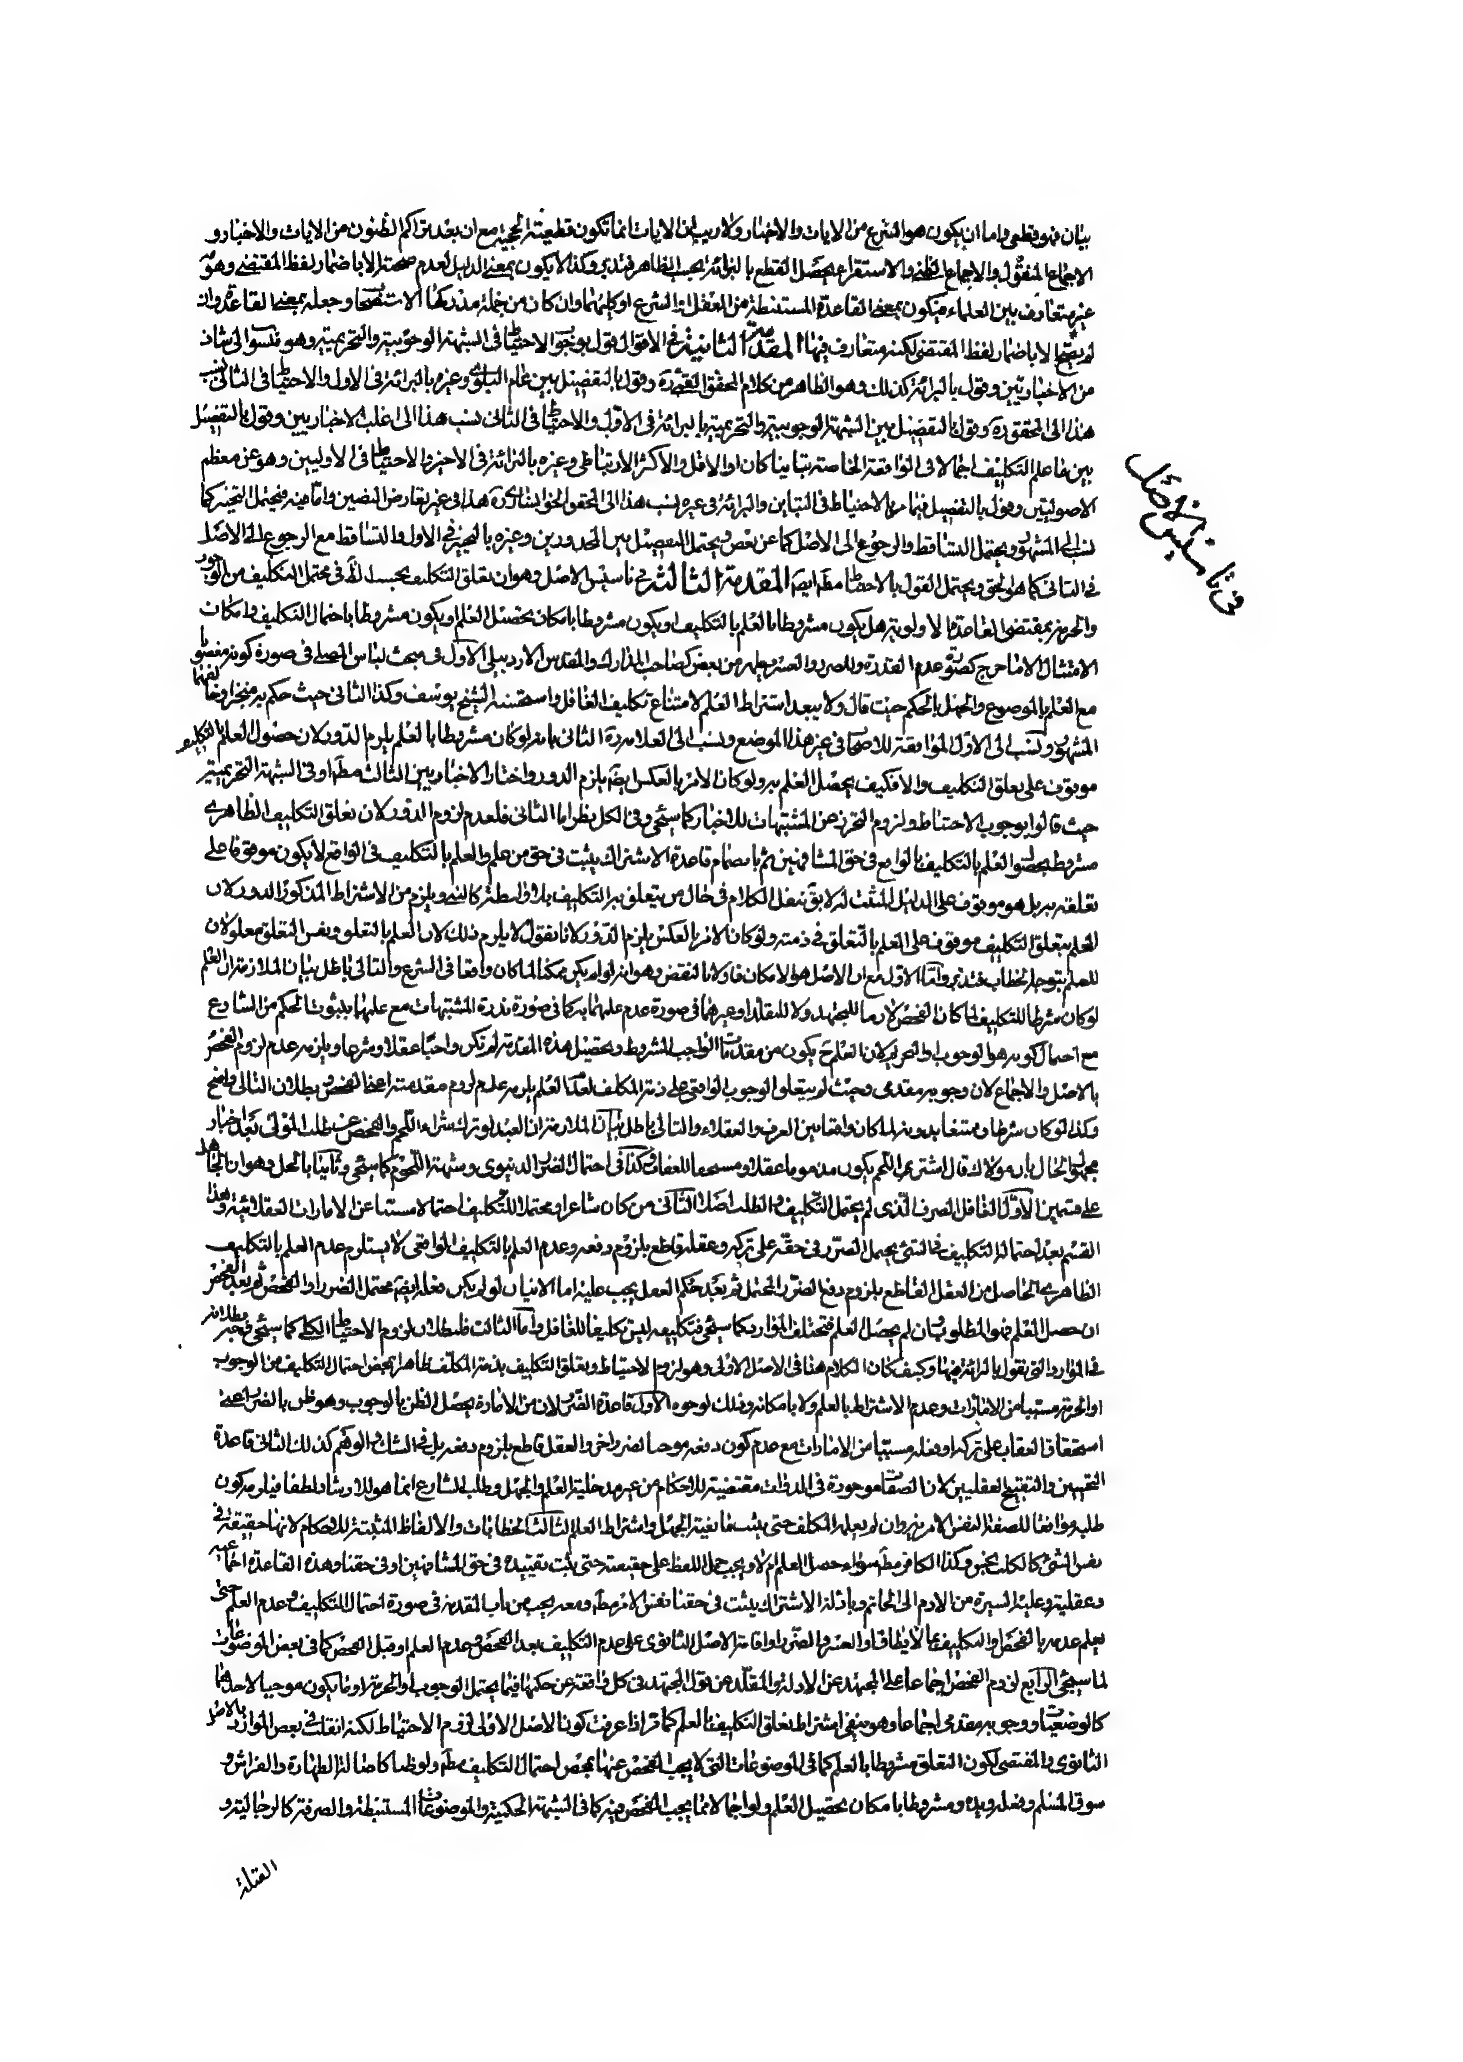 بيان فهو قطعى واما ان يكون هو الشرع من الايات والاخبار ولا ريب ان الايات انما تكون قطعية الحجية مع ان بعد تراكم الظنون من الايات والاخبار و
الاجماع المنقول والاجماع الظنى والاستقراء يحصل القطع بالبرائة بحسب الظاهر فتدبر وكذا لا يكون بمعنى الدليل لعدم صحته الا باضمار لفظ المقتضى وهو
غير متعارف بين العلماء فيكون بمعنى القاعدة المستنبطة من العقل او الشرع او كليهما وان كان من جملة مدركها الاستصحاب وجعله بمعنى القاعدة وان
لم يصح الا باضمار لفظ المقتضى لكنه متعارف فيها المقدمة الثانية فى الاقوال قول بوجوب الاحتياط فى الشبهة الوجوبية والتحريمية وهو منسوب الى شاذ
من الاخباريين وقول بالبرائة كذلك وهو الظاهر من كلام المحقق القمى ره وقول بالتفصيل بين عام البلوى وغيره بالبرائة فى الاول والاحتياط فى الثانى نسب
هذا الى المحقق ره وقول بالتفصيل بين الشبهة الوجوبية والتحريمية بالبرائة فى الاول والاحتياط فى الثانى نسب هذا الى اغلب الاخباريين وقول بالتفصيل
بين ما علم التكليف اجمالا فى الواقعة الخاصة تباينا كان او الاقل والاكثر الارتباطى وغيره بالبرائة فى الاخير والاحتياط فى الاوليين وهو عن معظم
الاصوليين وقول بالتفصيل فيما مر بالاحتياط فى التباين والبرائة فى غيره نسب هذا الى المحقق الخوانسارى ره هذا فى غير تعارض النصين واما فيه فيحتمل التخيير كما
نسب الى المشهور ويحتمل التساقط والرجوع الى الاصل كما عن بعض ويحتمل التفصيل بين المحذورين وغيره بالتخيير فى الاول والتساقط مع الرجوع الى الاصل
فى الثانى كما هو الحق ويحتمل القول بالاحتياط مطلقا ايضا المقدمة الثالثة فى تاسيس الاصل وهو ان تعلق التكليف بحسب الله فى محتمل التكليف من الوجوب
والحرمة بمقتضى القاعدة الاولوية هل يكون مشروطا بالعلم بالتكليف او يكون مشروطا بامكان تحصيل العلم او يكون مشروطا باحتمال التكليف وامكان
الامتثال الا ما خرج كصورة عدم القدرة والضرر والعسر ويظهر من بعض كصاحب المدارك والمقدس الاردبيلى الاول فى مبحث لباس المصلى فى صورة كونه مغصوبا
مع العلم بالموضوع والجهل بالحكم حيث قال ولا يبعد اشتراط العلم لامتناع تكليف الغافل واستحسنه الشيخ يوسف وكذا الثانى حيث حكم به
المشهور ونسب الى الاول الموافقة للاصحاب فى غير هذا الموضع ونسب الى العلامة ره الثانى بانه لو كان مشروطا بالعلم يلزم الدور لان حصول العلم بالتكليف
موقوف على تعلق التكليف والا فكيف يحصل العلم به ولو كان الامر بالعكس ايضا يلزم الدور واختار الاخباريين الثالث مطلقا او فى الشبهة التحريمية
حيث قالوا بوجوب الاحتياط ولزوم التحرز عن المشتبهات للاخبار كما سيجئ وفى الكل نظر اما الثانى فلعدم لزوم الدور لان تعلق التكليف الظاهرى
مشروط بحصول العلم بالتكليف الواقع فى حق المشافهين ثم بانضمام قاعدة الاشتراك يثبت فى حق من علم والعلم بالتكليف فى الواقع لا يكون موقوفا على
تعلقه به بل هو موقوف على الدليل المثبت له لا يق ننقل الكلام فى حال من يتعلق به التكليف بلا واسطة كالنبى ويلزم من الاشتراط المذكور الدور لان
العلم بتعلق التكليف موقوف على العلم بالتعلق فى ذمته ولو كان الامر بالعكس يلزم الدور لانا نقول لا يلزم ذلك لان العلم بالتعلق ونفس التعلق معلولان
للعلم بتوجه الخطاب فتدبر واما الاول مع ان الاصل هو الامكان فاولا بالنقض وهو انه لو لم يكن ممكنا لما كان واقعا فى الشرع والتالى باطل بيان الملازمة ان العلم
لو كان شرطا للتكليف لما كان الفحص لازما للمجتهد ولا للمقلد او غيرهما فى صورة عدم علمهما به كما فى صورة ندرة المشتبهات مع علمها بثبوت الحكم من الشارع
مع احتمال كونه هو الوجوب او التحريم لان العلم ح يكون من مقدمات الواجب المشروط وتحصيل هذه المقدمة لم تكن واجبا عقلا وشرعا ويلزمه عدم لزوم الفحص
بالاصل والاجماع لان وجوبه مقدمى وحيث لم يتعلق الوجوب الواقعى على ذمة المكلف لعدم العلم يلزمه عدم لزوم مقدمته اعنى الفحص وبطلان التالى واضح
وكذا لو كان شرطا وممتنعا بدونه لما كان واقعا بين العرف والعقلاء والتالى باطل بيان الملازمة ان العبد لو ترك شراء اللحم والفحص عن طلب المولى بعد اخبار
مجهول الحال بان مولاك قال اشتر اللحم يكون مذموما عقلا ومستحقا للعقاب وكذا فى احتمال الضرر الدنيوى وشبهة اللحوم كما سيجئ وثانيا بالحل وهو ان الجاهل
على قسمين الاول الغافل الصرف الذى لم يحتمل التكليف والطلب اصلا الثانى من كان شاعرا ومحتملا للتكليف احتمالا مستندا عن الامارات العقلائية وهذا
القسم بعد احتماله التكليف فى الشئ يحتمل الضرر فى حقه على تركه وعقله قاطع بلزوم دفعه وعدم العلم بالتكليف الواقعى لا يستلزم عدم العلم بالتكليف
الظاهرى الحاصل من العقل القاطع بلزوم دفع الضرر المحتمل ثم بعد حكم العقل يجب عليه اما الاتيان لو لم يكن فعله ايضا محتمل الضرر او الفحص ثم بعد الفحص
ان حصل العلم فهو المطلوب وان لم يحصل العلم فتختلف الموارد كما سيجئ فتكليفه ليس تكليفا للغافل واما الثالث فلبطلان لزوم الاحتياط الكلى كما سيجئ بطلانه
فى الموارد التى نقول بالبرائة فيها وكيف كان الكلام هنا فى الاصل الاولى وهو لزوم الاحتياط وتعلق التكليف بذمة المكلف ظاهرا بمحض احتمال التكليف من الوجوب
او الحرمة مسببا من الامارات وعدم الاشتراط بالعلم ولا بامكانه وذلك لوجوه الاول قاعدة الضرر لان من الامارة يحصل الظن بالوجوب وهو ظن بالضرر اعنى
استحقاق العقاب على تركه او فعله مسببا من الامارات مع عدم كون دفعه موجبا لضرر اخر والعقل قاطع بلزوم دفعه بل فى الشك والوهم كذلك الثانى قاعدة
التحسين والتقبيح العقليين لان الصفات موجودة فى الذوات مقتضية للاحكام من غير مدخلية العلم والجهل وطلب الشارع انما هو للارشاد لطفا فيلزمه كون
طلبه موافقا للصفة النفس الامرية وان لم يعلم المكلف حتى يثبت مانعية الجهل واشتراط العلم الثالث الخطابات والالفاظ المثبتة للاحكام لانها حقيقة فى
نفس الشئ كالكلب نجس وكذا الكافر مطلقا سواء حصل العلم ام لا ويجب حمل اللفظ على حقيقته حتى يثبت تقييده فى حق المشافهين او فى حقنا وهذه القاعدة اجماعية
وعقلية وعليه السيرة من الادم الى الخاتم وبادلة الاشتراك يثبت فى حقنا نفس الامر مطلقا ومعه يجب من باب المقدمة فى صورة احتمال التكليف وعدم العلم حتى
يعلم عدمه بالفحص او التكليف بما لا يطاق او العسر والضرر او اقامة الاصل الثانوى على عدم التكليف بعد الفحص وعدم العلم او قبل الفحص كما فى بعض الموضوعات
لما سيجئ الرابع لزوم الفحص اجماعا على المجتهد عن الادلة والمقلد من قول المجتهد فى كل واقعة عن حكمها فيما يحتمل الوجوب او الحرمة او ما يكون موجبا لاحدهما
كالوضعيات ووجوبه مقدمى اجماعا وهو ينفى اشتراط تعلق التكليف بالعلم كما مر اذا عرفت كون الاصل الاولى لزوم الاحتياط لكنه انقلب فى بعض الموارد بالاصل
الثانوى المقتضى لكون التعلق مشروطا بالعلم كما فى الموضوعات التى لا يجب الفحص عنها بمحض احتمال التكليف مطلقا ولو ظنا كاصالة الطهارة والفراش و
سوق المسلم وفعله ويده ومشروطا بامكان تحصيل العلم ولو اجمالا فيما يجب الفحص فيه كما فى الشبهة الحكمية والموضوعات المستنبطة والصرفة كالرجالية و
القبلة
فى تاسيس الاصل